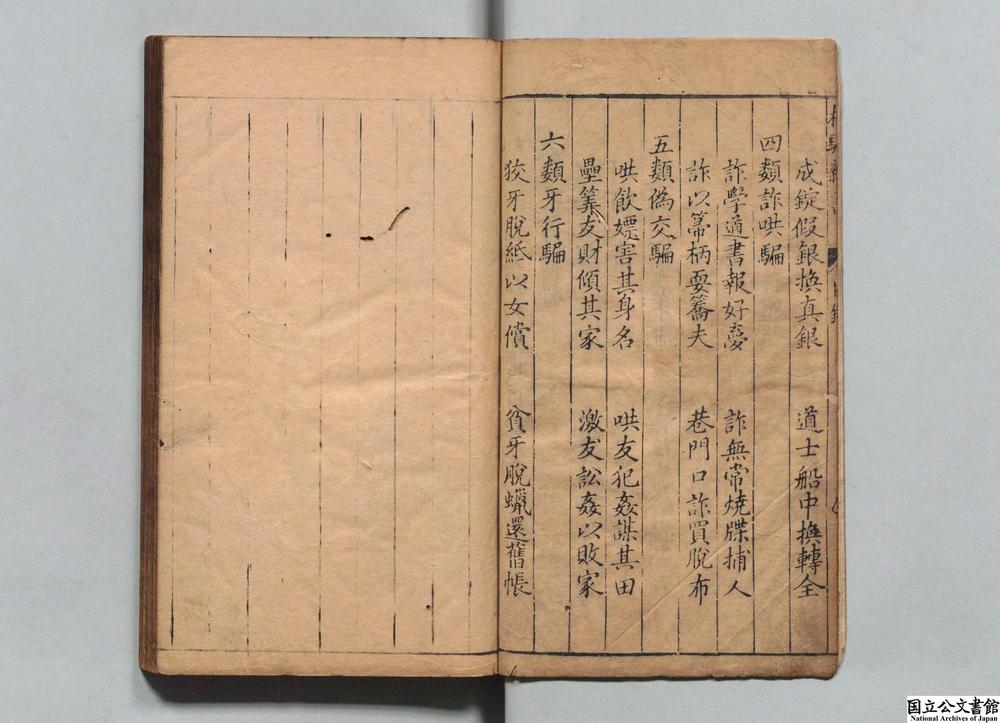 成錠假銀換真銀　道士船中換轉金
四類詐哄騙
詐學道書報好夢　詐無常燒牒捕人
詐以帚柄耍轎夫　巷門口詐買脫布
五類偽交騙
哄飲嫖害其身名　哄友犯姦謀其田
壘筭友財傾其家　激友訟姦以敗家
六類牙行騙
狡牙脫紙以女償　貧牙脫蠟還舊帳
国立公文書館
National Archives of Japan